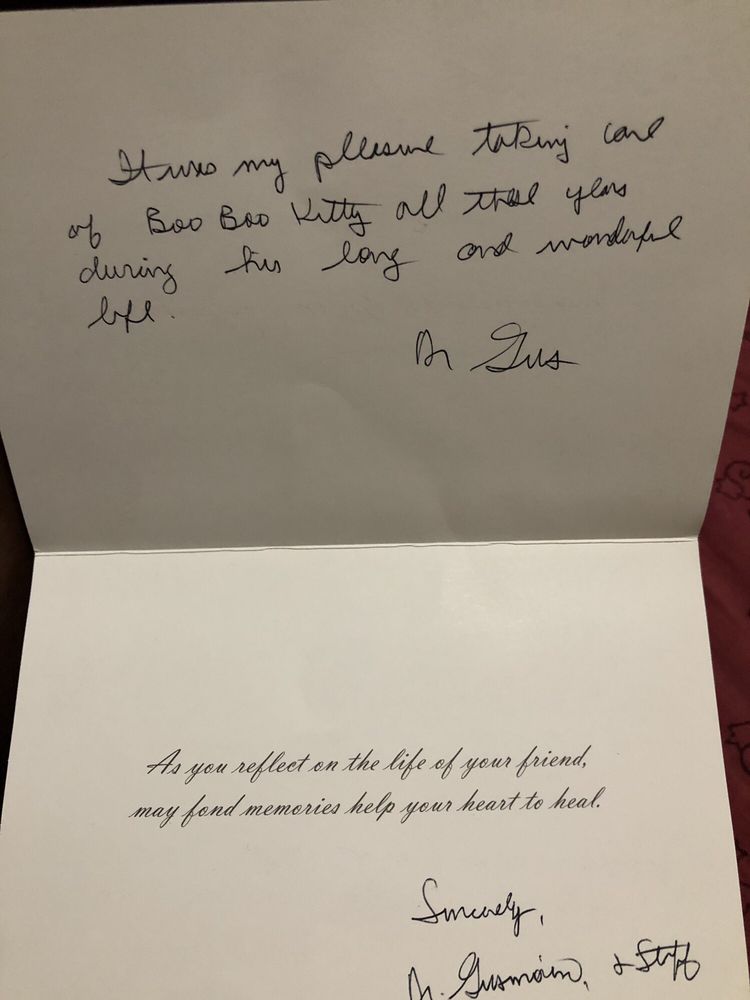 It was my pleasure taking care
of Boo Boo Kitty all these years
during his long and wonderful
life.
Dr Gus
As you reflect on the life of your friend,
may fond memories help your heart to heal.
Sincerely,
Dr. & Staff